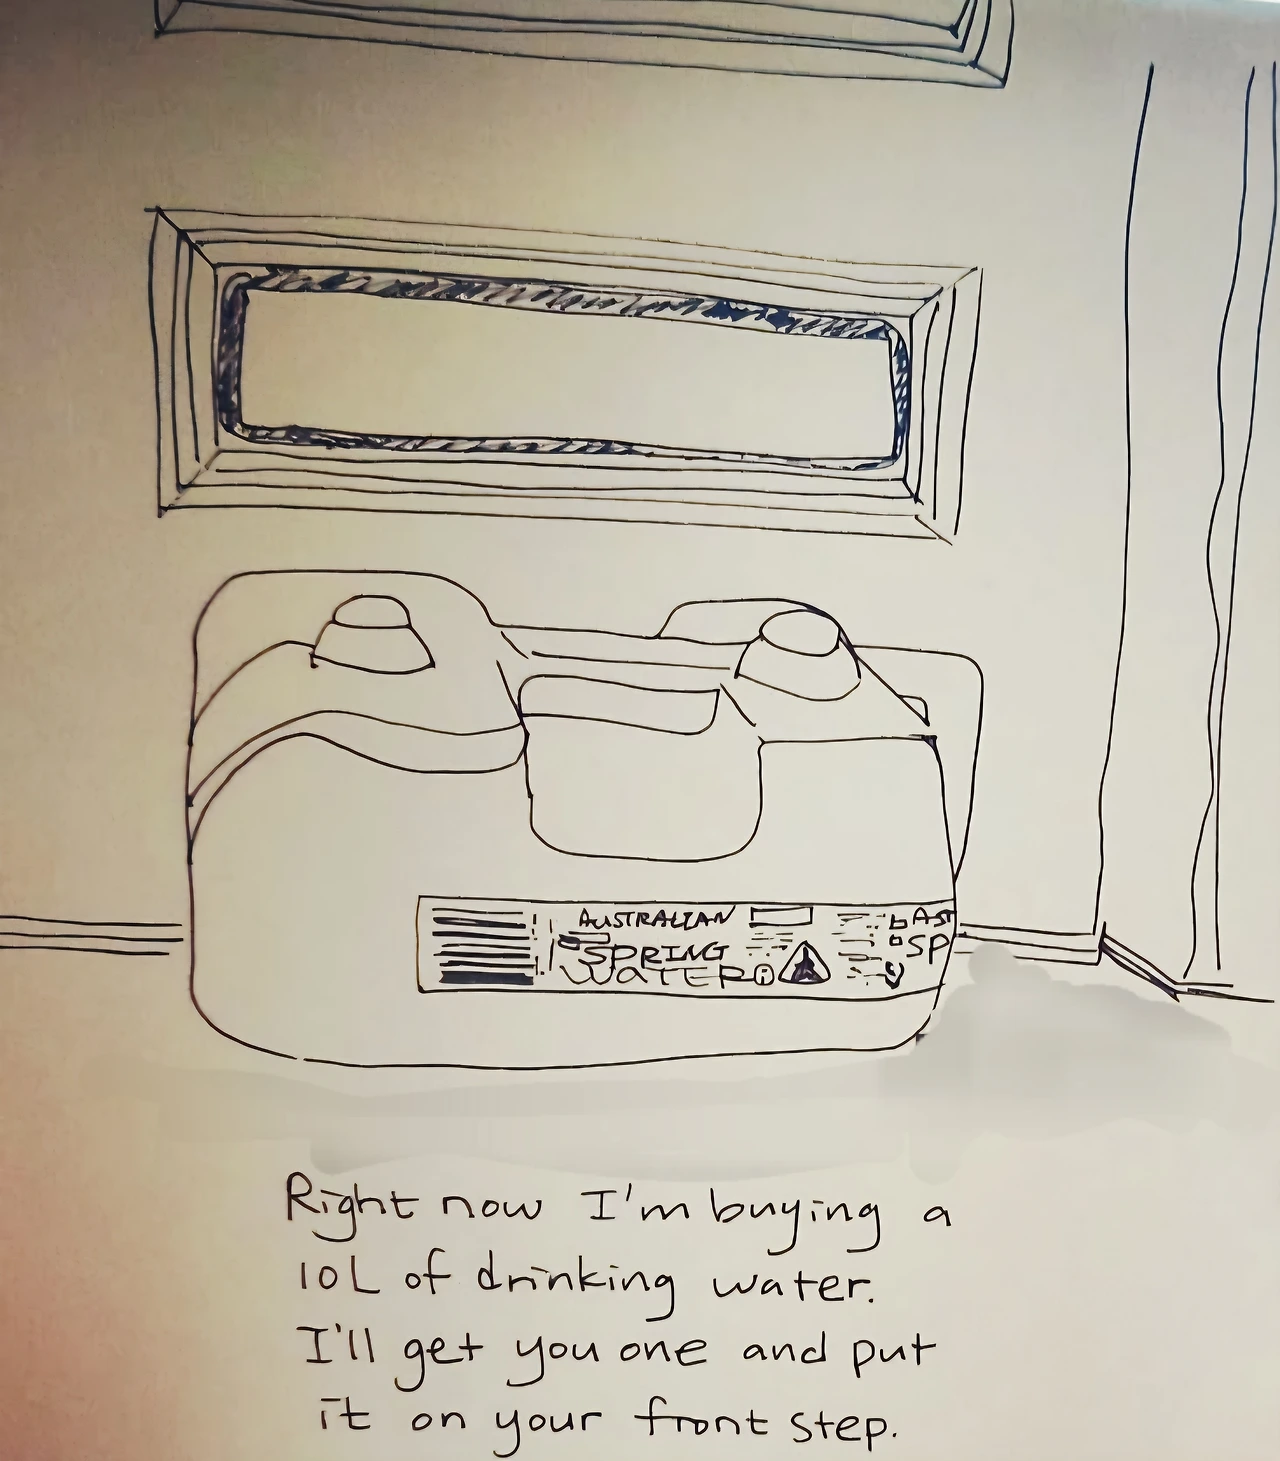 AUSTRALIAN
SPRING
WATER
AST
SP
Right now I'm buying a
10L of drinking water.
I'll get you one and put
it on your front step.